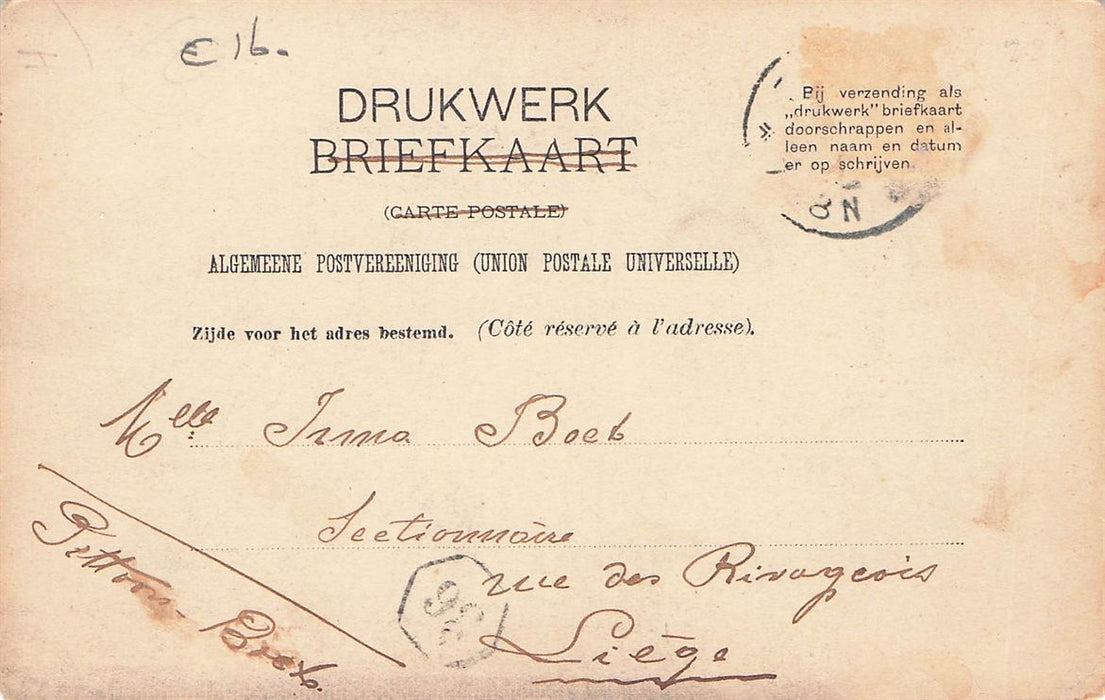 € 16.
DRUKWERK
BRIEFKAART
(CARTE POSTALE)
ALGEMEENE POSTVEREENIGING (UNION POSTALE UNIVERSELLE)
Zijde voor het adres bestemd. (Côté réservé à l'adresse).
Bij verzending als
„drukwerk” briefkaart
doorschrappen en al-
leen naam en datum
er op schrijven.
8 N
Melle Irma Boeb
Sectionnaire
rue des Rivageois
Liège
36